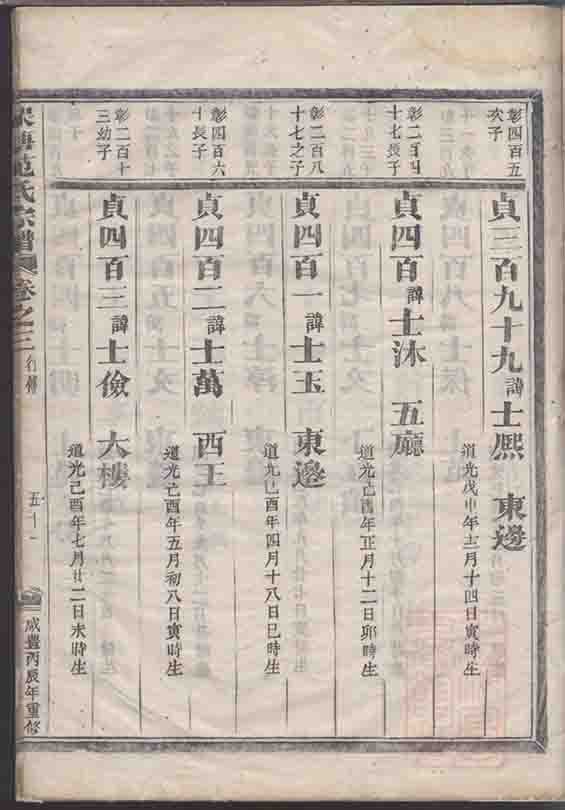 彰四百五
次子
貞三百九十九諱士熈 東邊
道光戊申年十二月十四日寅時生
彰二百四
十七長子
貞四百諱士沐 五廳
道光己酉年正月十二日卯時生
彰二百八
十七之子
貞四百一諱士玉 東邊
道光己酉年四月十八日巳時生
彰四百六
十長子
貞四百二諱士萬 西王
道光己酉年五月初八日寅時生
彰二百十
三幼子
貞四百三諱士儉 大樓
道光己酉年七月廿二日未時生
范氏宗譜 卷之 行傳
五十一
咸豐丙辰年重修